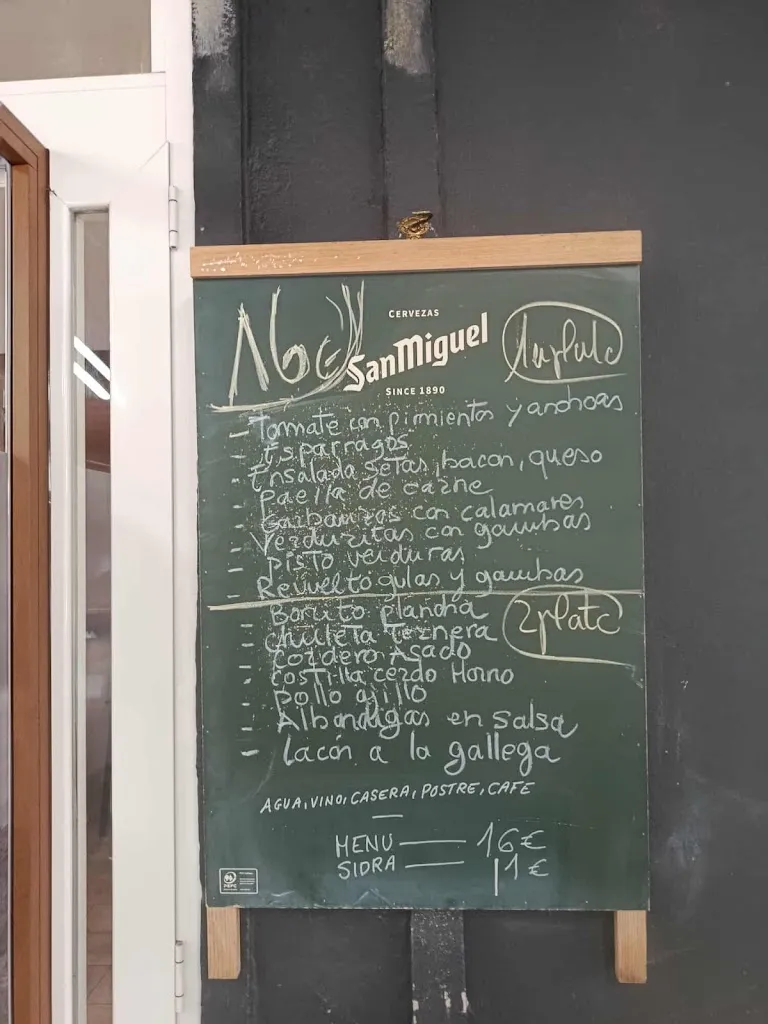 16€
CERVEZAS
SanMiguel
SINCE 1890
1er plato
- Tomate con pimientos y anchoas
- Esparragos
- Ensalada setas, bacon, queso
- Paella de carne
- Garbanzos con calamares
- Verduritas con gambas
- Pisto verduras
- Revuelto gulas y gambas
2 plato
- Bonito plancha
- Chuleta Ternera
- Cordero Asado
- Costilla cerdo Horno
- Pollo ajillo
- Albondigas en salsa
- Lacón a la gallega
AGUA, VINO, CASERA, POSTRE, CAFE
MENU — 16€
SIDRA — 1€
PEFC